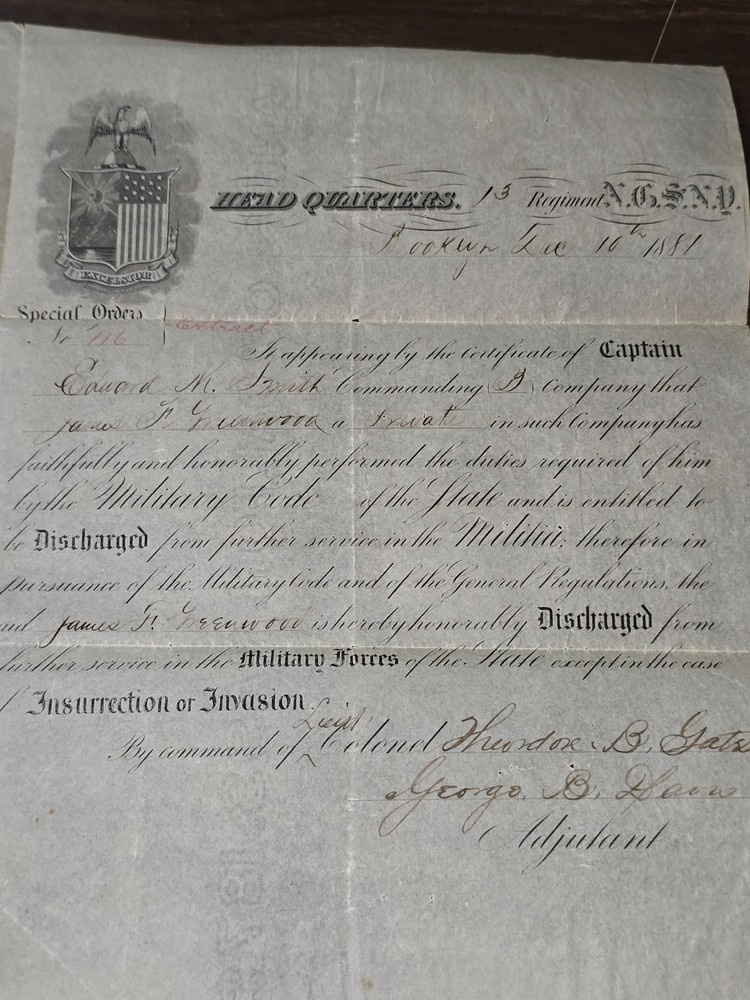 EXCELSIOR
HEAD QUARTERS. 13 Regiment N.G.S.N.Y.
Brooklyn Dec 10th 1881
Special Orders
No 116 Extract
It appearing by the Certificate of Captain
Edward M. Smith Commanding (B) Company that
James F. Greenwood a Private in such Company has
faithfully and honorably performed the duties required of him
by the Military Code of the State and is entitled to
be Discharged from further service in the Militia; therefore in
pursuance of the Military Code and of the General Regulations, the
said James F. Greenwood is hereby honorably Discharged from
further service in the Military Forces of the State except in the case
of Insurrection or Invasion.
By command of Lieut Colonel Theodore B. Gates
George B. Davis
Adjutant